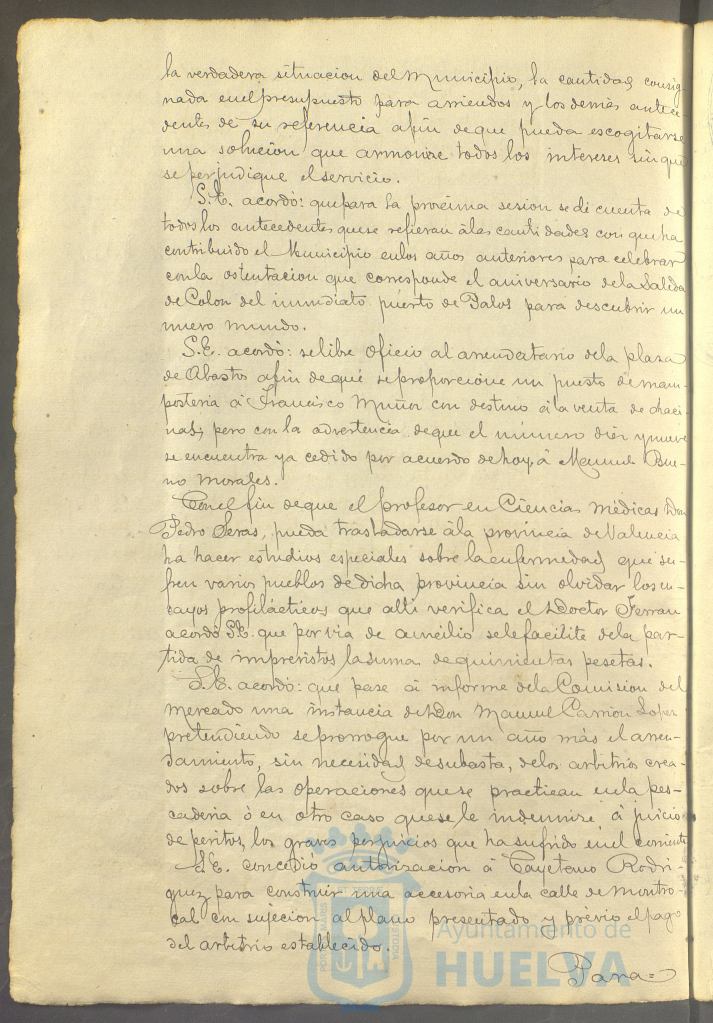 la verdadera situacion del Municipio, la cantidad consig
nada en el presupuesto para arriendos y los demás antece
dentes de su referencia afin de que pueda escogitarse
una solucion que armonice todos los intereses sin que
se perjudique el servicio.
S.E. acordó: que para la proxima sesion se dé cuenta de
todos los antecedentes que se refieran á las cantidades con que ha
contribuido el Municipio en los años anteriores para celebrar
con la ostentacion que corresponde el aniversario de la Salida
de Colon del inmediato puerto de Palos para descubrir un
nuevo mundo.
S.E. acordó: se libre oficio al arrendatario de la plaza
de Abastos afin de que se proporcione un puesto de mam-
posteria á Francisco Muñoz con destino á la venta de chaci
nas, pero con la advertencia de que el número diez y nueve
se encuentra ya cedido por acuerdo de hoy, á Manuel Bue-
no Morales.
Con el fin de que el profesor en Ciencias médicas Don
Pedro Seras, pueda trasladarse á la provincia de Valencia
ha hacer estudios especiales sobre la enfermedad que su-
fren varios pueblos de dicha provincia sin olvidar los en-
sayos profilácticos que alli verifica el Doctor Ferran
acordó S.E. que por via de aucilio se le facilite de la par-
tida de imprevistos la suma de quinientas pesetas.
S.E. acordó: que pase á informe de la Comision del
mercado una instancia de Don Manuel Carrion Lopez
pretendiendo se prorrogue por un año más el arren-
damiento, sin necesidad de subasta, de los arbitrios crea-
dos sobre las operaciones que se practican en la pes-
caderia ó en otro caso que se le indemnice á juicio
de peritos, los graves perjuicios que ha sufrido en el corriente
S.E. concedió autorizacion á Cayetano Rodri-
guez para construir una accesoria en la calle de Montro-
cal con sujecion al plano presentado y previo el pago
del arbitrio establecido.
Para=
Ayuntamiento de
HUELVA